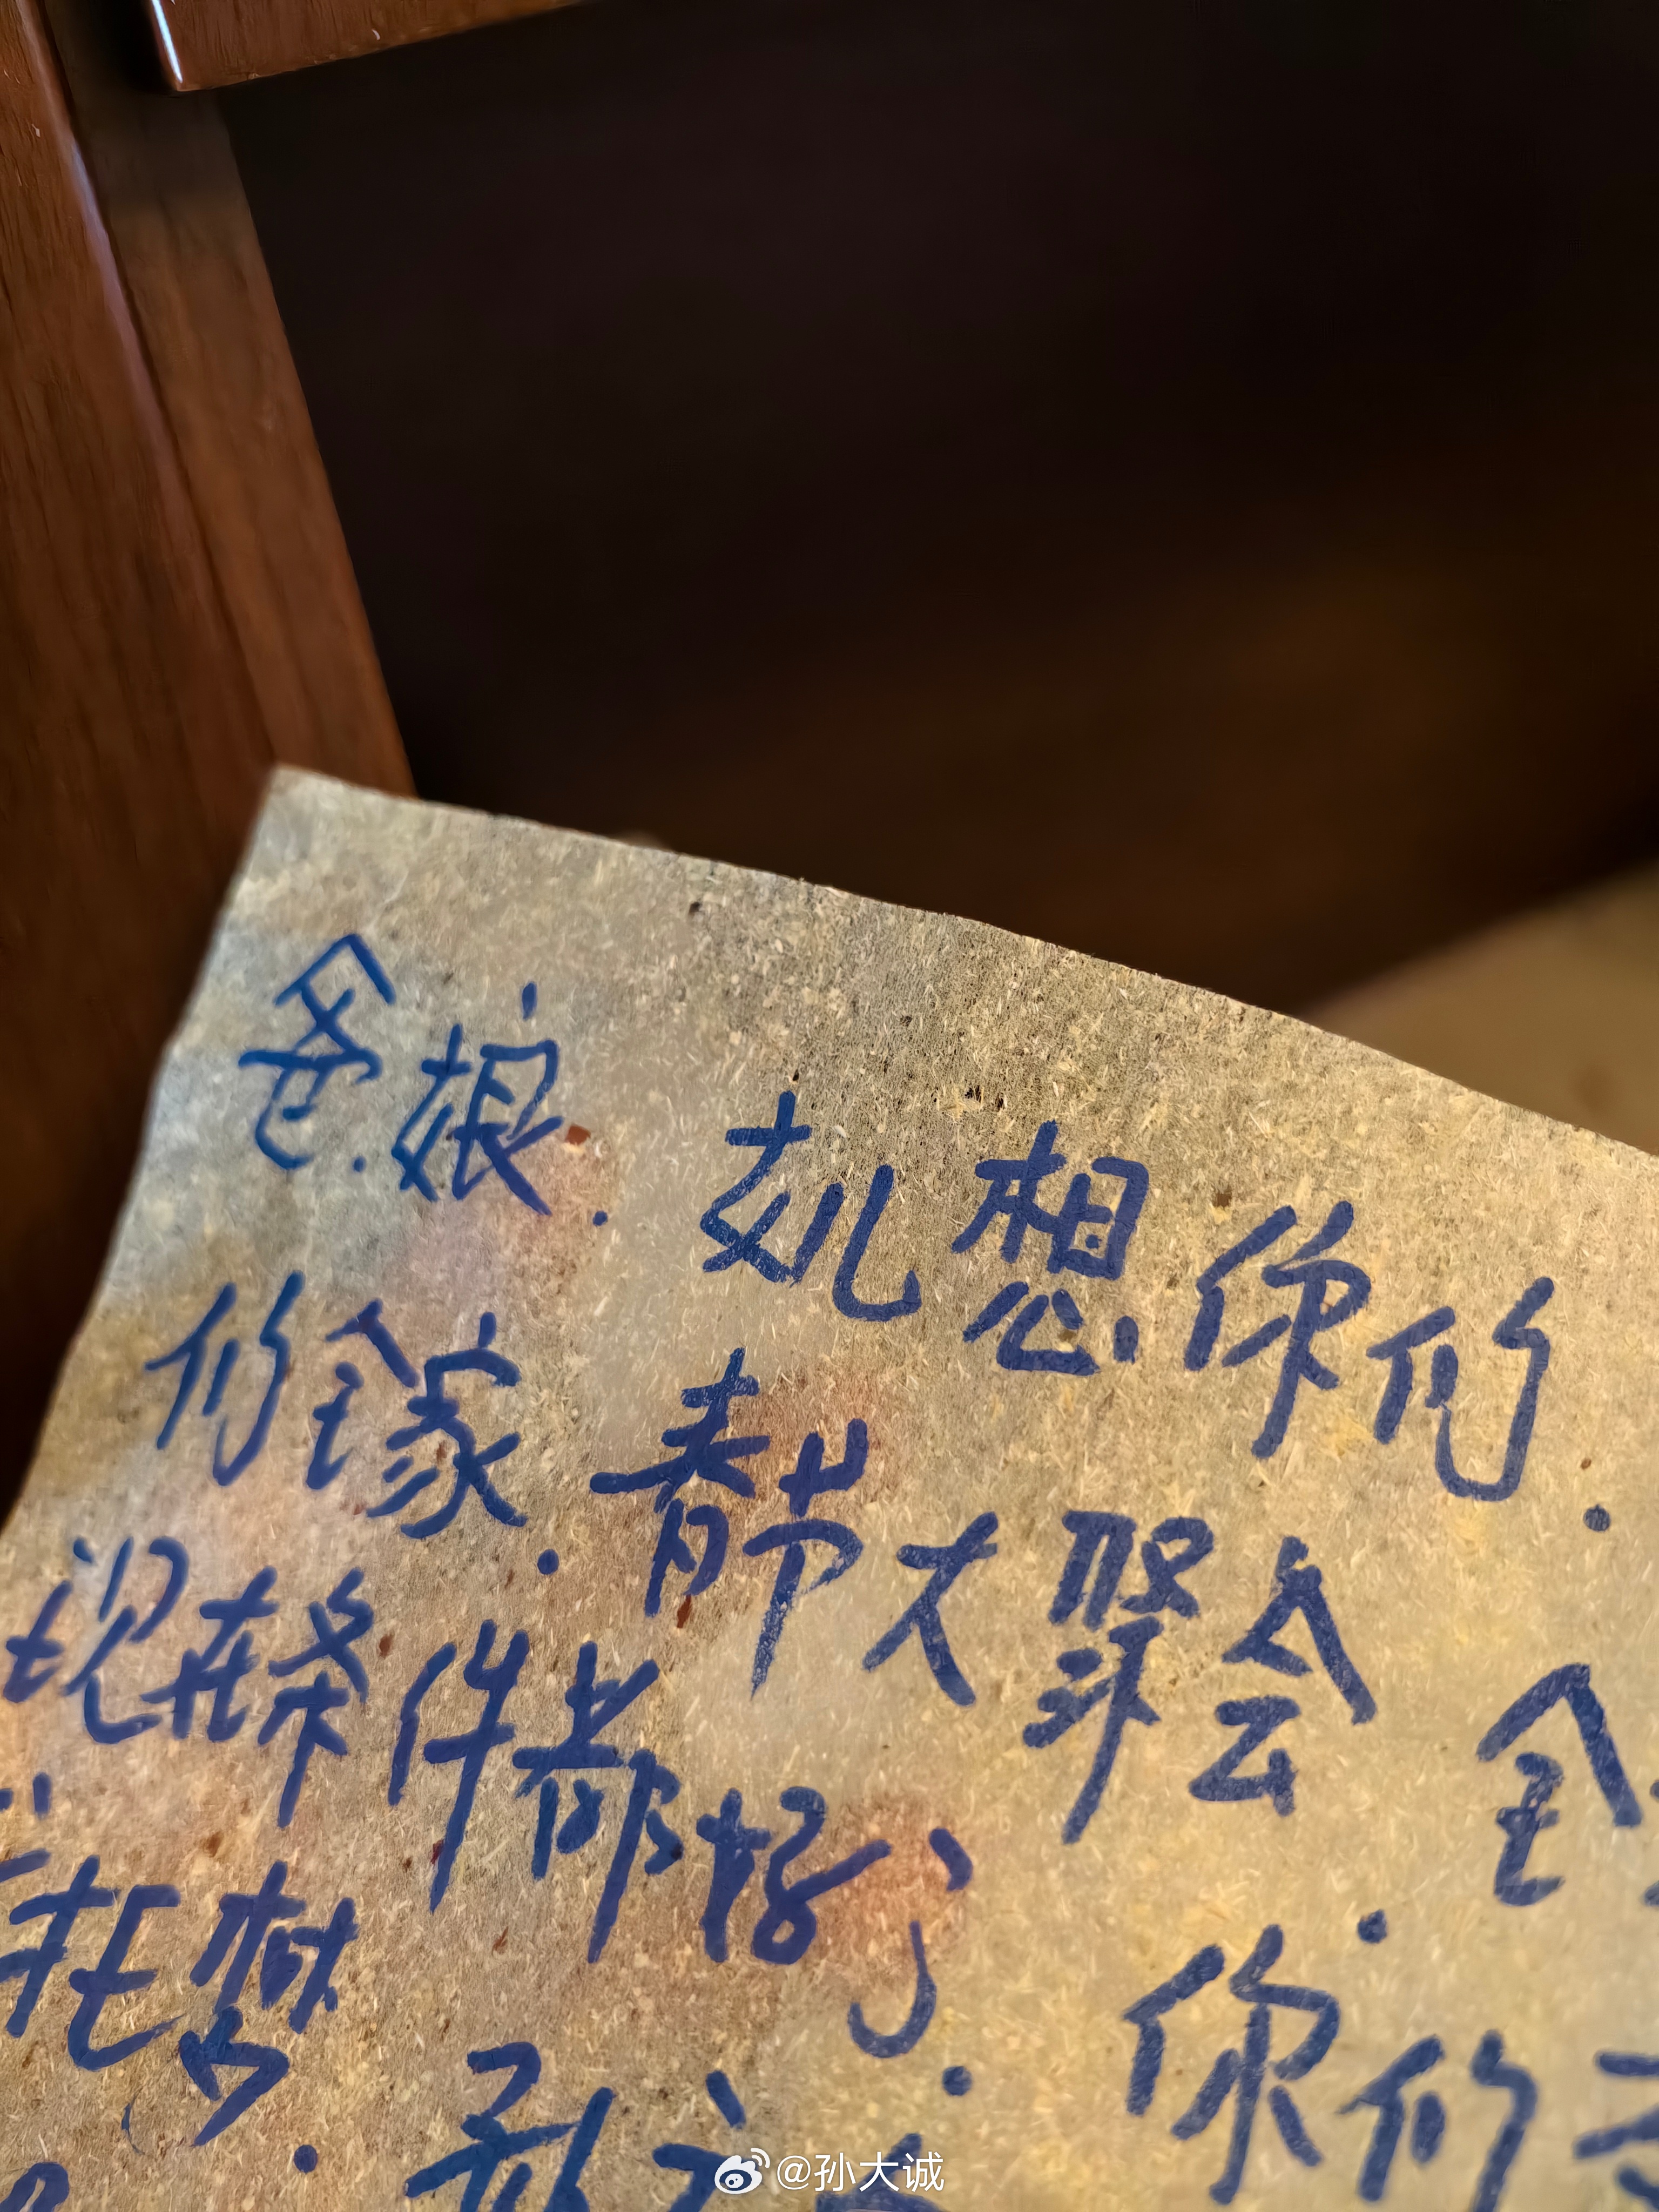 爸.娘.女儿想你们.
们全家.春节大聚会.全
现在条件都好了.你们
托梦.
@孙大诚